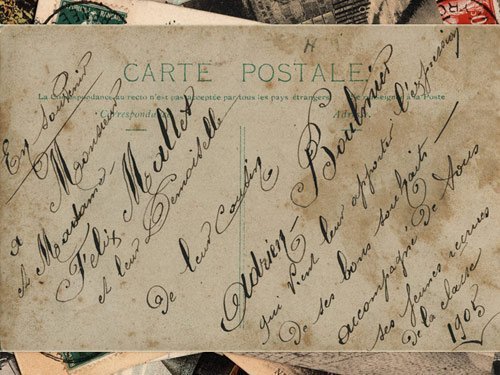 CARTE POSTALE
La Correspondance au recto n'est pas acceptée par tous les pays étrangers
à la Poste
Correspondance
Adresse
En souvenir
a Monsieur
et Madame
Félix Mallet
et leur Demoiselle
De leur Cousin
Adrien Boulnier
qui vient leur apporter l'expression
De ses bons souhaits
accompagné De tous
ses jeunes recrues
De la classe
1905